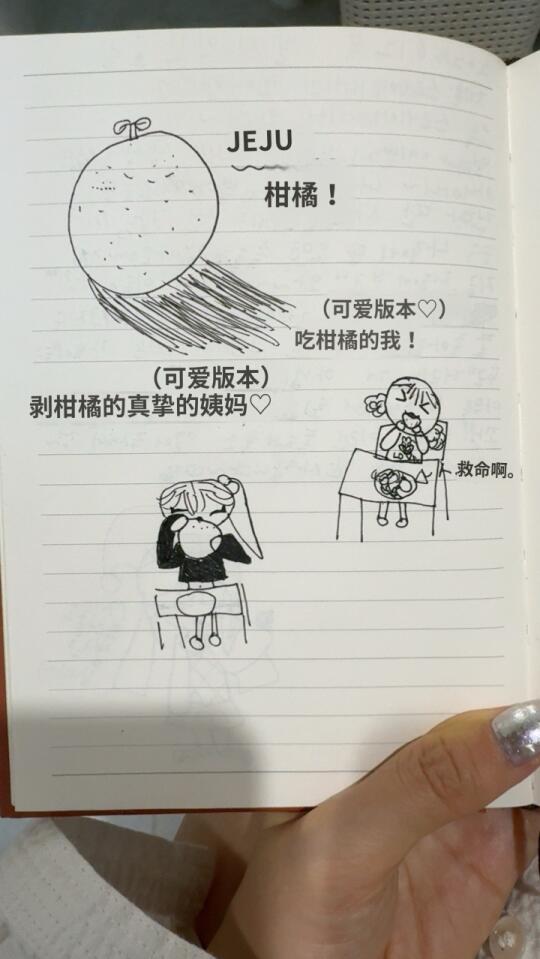 JEJU
柑橘！
（可爱版本♡）
吃柑橘的我！
（可爱版本）
剥柑橘的真挚的姨妈♡
救命啊。